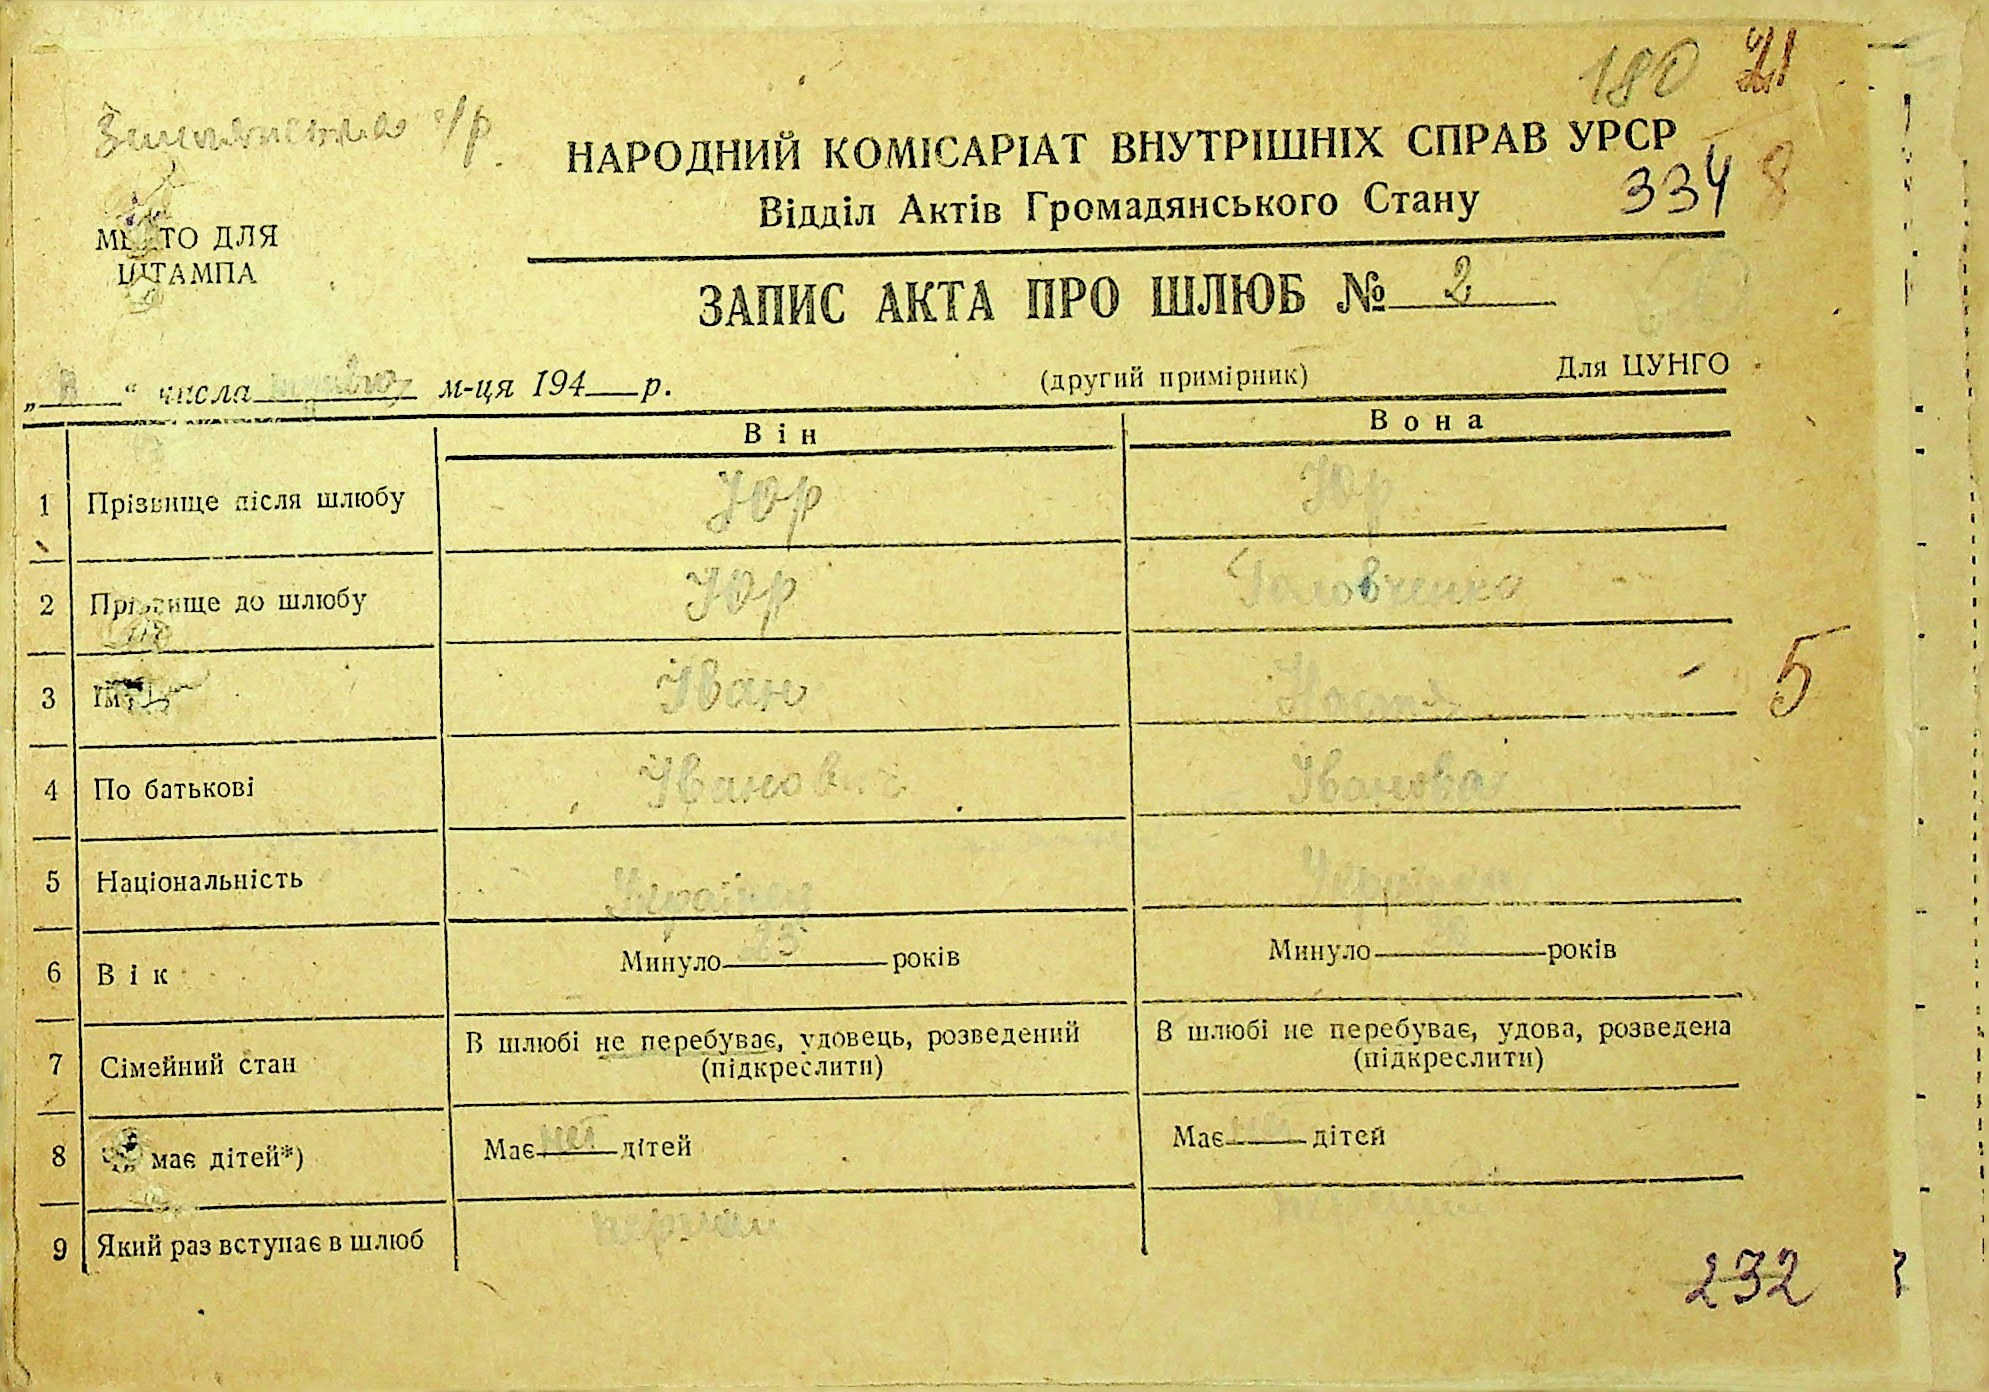 180 21
с/р
НАРОДНИЙ КОМІСАРІАТ ВНУТРІШНІХ СПРАВ УРСР
334 8
Відділ Актів Громадянського Стану
МІСТО ДЛЯ
ШТАМПА
ЗАПИС АКТА ПРО ШЛЮБ № 2
„ “ числа м-ця 194 р.
(другий примірник)
Для ЦУНГО
Він Вона
1 Прізвище після шлюбу Юр Юр
2 Прізвище до шлюбу Юр Головченко
3 Ім'я Іван Настя
5
4 По батькові Іванович Іванова
5 Національність Українец Українка
6 Вік Минуло 23 років Минуло років
7 Сімейний стан В шлюбі не перебуває, удовець, розведений (підкреслити) В шлюбі не перебуває, удова, розведена (підкреслити)
8 Чи має дітей*) Має неї дітей Має неї дітей
9 Який раз вступає в шлюб перший перший
232